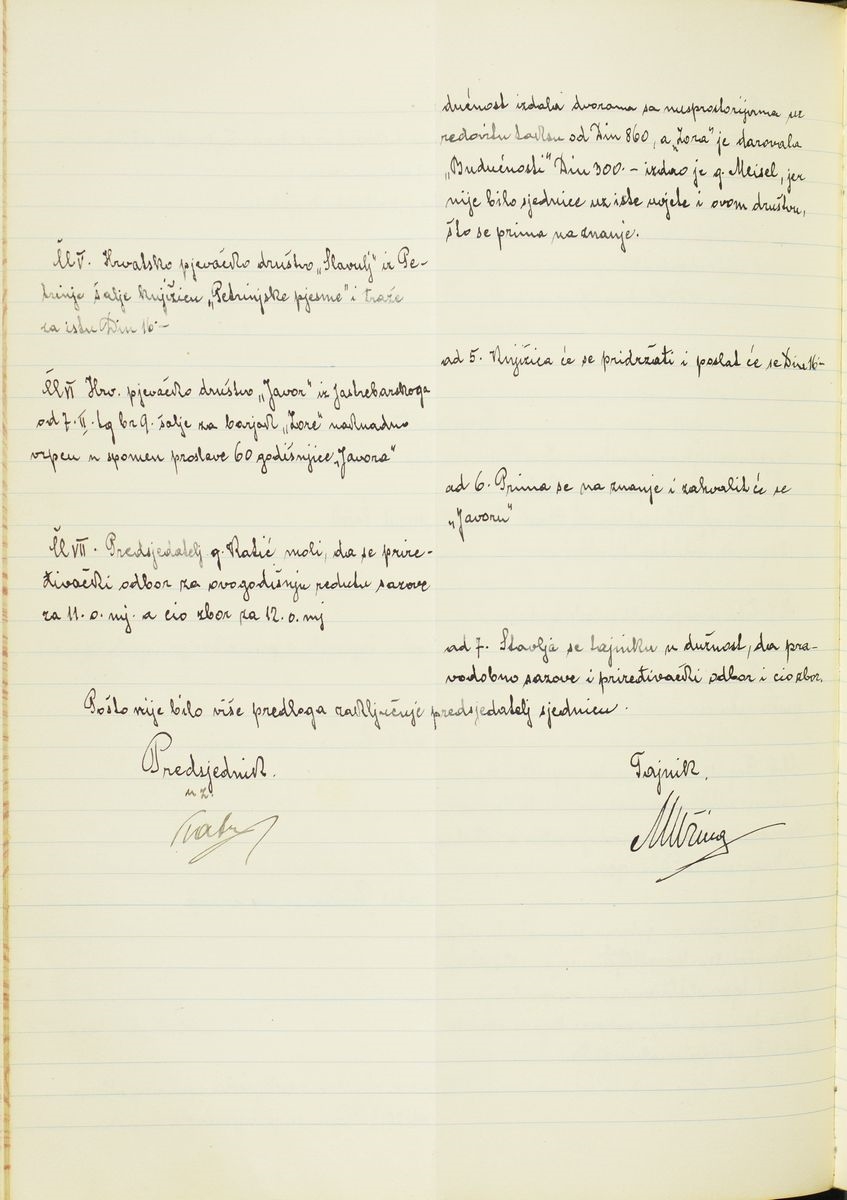 dućnost izdala dvorana sa nusprostorijama uz
redovitu taksu od Din 860, a „Zora" je darovala
„Budućnosti" Din 300.- izdao je g. Meisel, jer
nije bilo sjednice uz iste uvjete i ovom društvu,
što se prima na znanje.
Čl V. Hrvatsko pjevačko društvo „Slavulj" iz Pe-
trinje šalje knjižicu „Petrinjske pjesme" i traže
za istu Din 16.-
ad 5. Knjižica će se pridržati i poslat će se Din 16.-
Čl VI Hrv. pjevačko društvo „Javor" iz Jastrebarskoga
od 7. II. t.g. br 9. šalje za barjak „Zore" naknadno
vrpcu u spomen proslave 60 godišnjice „Javora"
ad 6. Prima se na znanje i zahvalit će se
„Javoru"
Čl VII. Predsjedatelj g. Ratić moli, da se prire-
đivački odbor za ovogodišnju redutu sazove
za 11. o. mj. a cio zbor za 12. o. mj
ad 7. Stavlja se tajniku u dužnost, da pra-
vodobno sazove i priređivački odbor i cio zbor.
Pošto nije bilo više predloga zaključuje predsjedatelj sjednicu.
Predsjednik.
Tajnik.